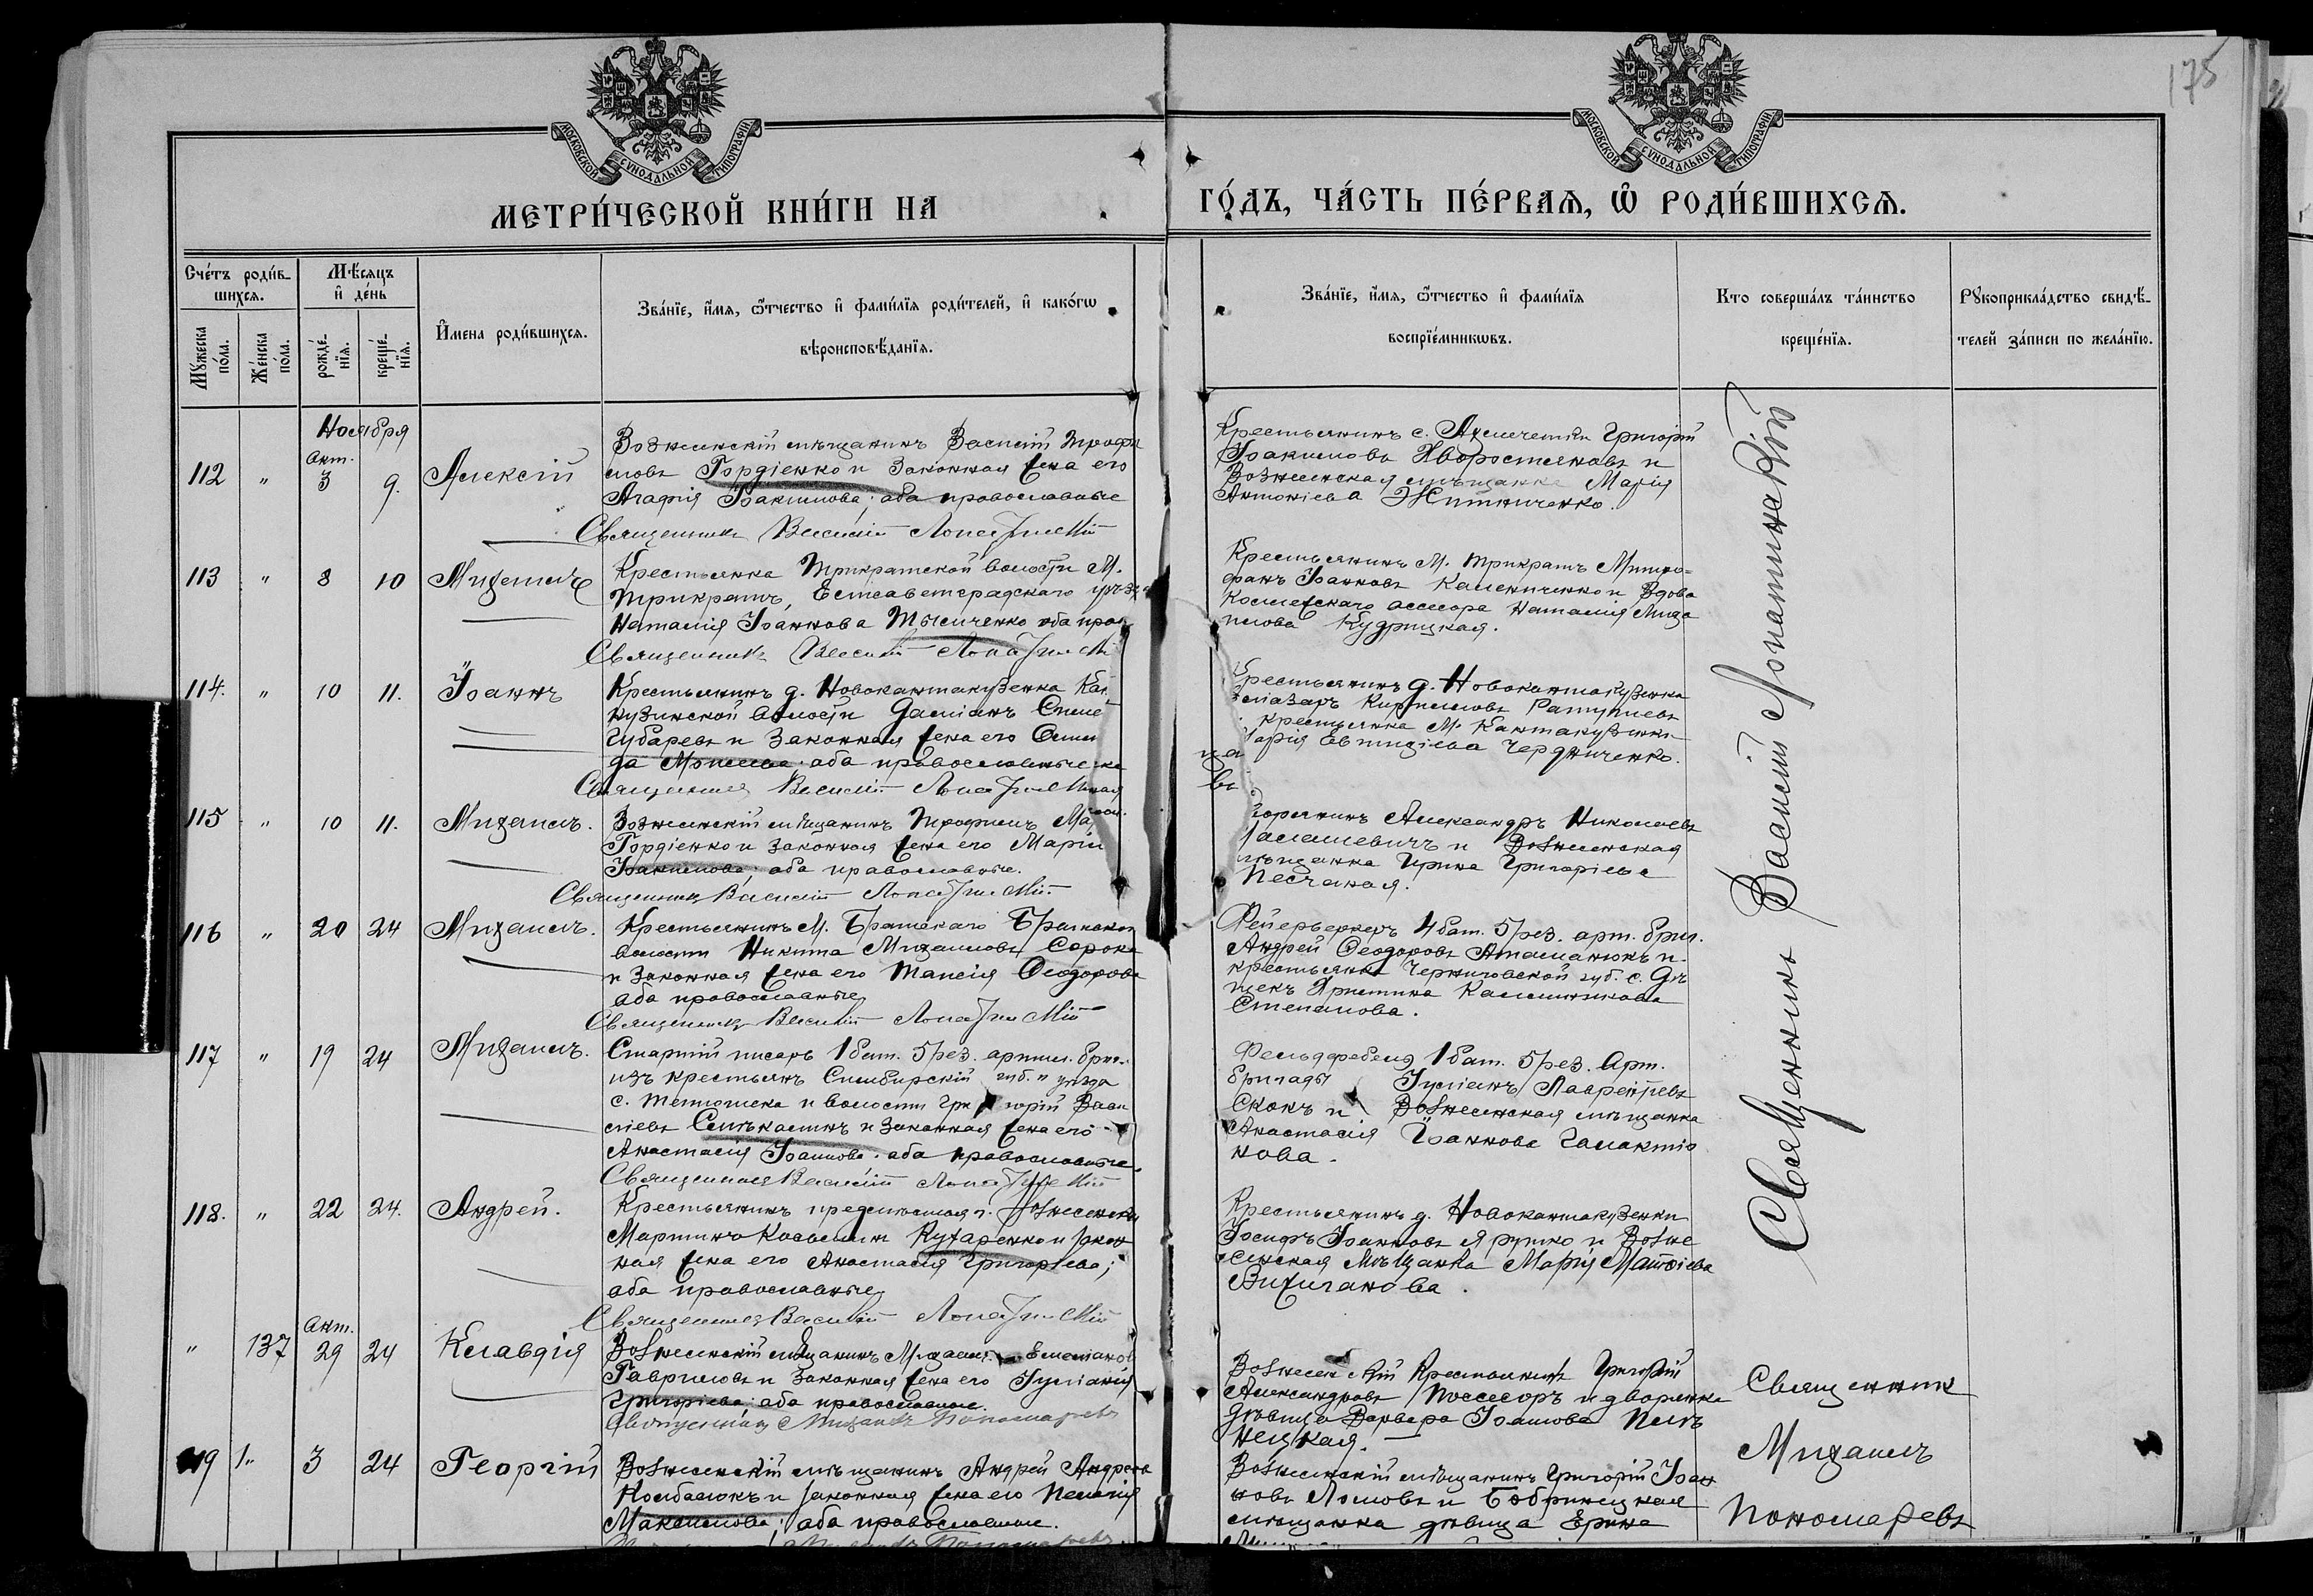 175
МОСКОВСКОЙ СѴНОДАЛЬНОЙ ТИПОГРАФІИ
МОСКОВСКОЙ СѴНОДАЛЬНОЙ ТИПОГРАФІИ
МЕТРИ́ЧЕСКОЙ КНИ́ГИ НА
ГО́ДЪ, ЧА́СТЬ ПЕ́РВАѦ, Ѡ҆ РОДИ́ВШИХСѦ.
Сче́тъ роди́в-
шихсѧ.
Мѣ́сѧцъ
и҆ де́нь
Мꙋ́жеска
по́ла.
Же́нска
по́ла.
рожде́-
нїѧ.
креще́-
нїѧ.
И҆мена роди́вшихсѧ.
Зва́нїе, и҆́мѧ, ѻ҆́тчество и҆ фами́лїѧ роди́телей, и҆ како́гѡ
вѣроисповѣ́данїѧ.
Зва́нїе, и҆́мѧ, ѻ҆́тчество и҆ фами́лїѧ
воспрїе́мникѡвъ.
Кто соверша́лъ та́инство
креще́нїѧ.
Рꙋкоприкла́дство свидѣ́-
телей за́писи по жела́нїю.
Ноября
112 " Окт. 3 9. Алексій
Вознесенскій мѣщанинъ Василій Трофи
мовъ Гордіенко и законная жена его
Агафія Іоакимова; оба православные
Священникъ Василій Лопатинскій
Крестьянинъ с. Акмечетки Григорій
Іоакимовъ Хворостяновъ и
Вознесенская мѣщанка Марія
Антоніева Житниченко.
113 " 8 10 Михаилъ
Крестьянка Трикратской волости М.
Трикратъ, Елисаветградскаго уѣзда
Наталія Іоаннова Тысиченко оба прав.
Священникъ Василій Лопатинскій
Крестьянинъ М. Трикратъ Митро-
фанъ Іоанновъ Калениченко и Вдова
Коллежскаго ассесора Наталія Миха
илова Кудрицкая.
114. " 10 11. Іоаннъ
Крестьянинъ д. Новокантакузенка Кан
кузинской волости Даміанъ
Губаревъ и законная жена его
да Моисеева; оба православные
Священникъ Василій Лопатинскій
Крестьянинъ д. Новокантакузенка
Елеазаръ Кирилловъ
крестьянка М. Кантакузенки
Марія Евтихіева Чердниченко.
115 " 10 11. Михаилъ.
Вознесенскій мѣщанинъ Трофимъ
Гордіенко и законная жена его Марія
Іоакимова; оба православные.
Священникъ Василій Лопатинскій
Дворянинъ Александръ Николаевъ
и Вознесенская
мѣщанка Ирина Григоріева
Песчаная.
116 " 20 24 Михаилъ.
Крестьянинъ М. Братскаго Братской
волости Никита Михаиловъ Сорока
и законная жена его Таисія Ѳеодорова
оба православные
Священникъ Василій Лопатинскій
Фейерверкеръ 4 бат. 5 рез. арт. бриг.
Андрей Ѳеодоровъ Атаманюкъ и
крестьянка Черниговской губ. с.
Христина Калинникова
Степанова.
117 " 19 24 Михаилъ.
Старшій писарь 1 бат. 5 рез. артил. бриг.
изъ крестьянъ Симбирскій губ. и уѣзда
с. и волости Григорій Васи
ліевъ и законная жена его
Анастасія Іоаннова; оба православные.
Священникъ Василій Лопатинскій
Фельдфебель 1 бат. 5 рез. Арт.
бригады Іуліанъ Лаврентіевъ
Скокъ и Вознесенская мѣщанка
Анастасія Іоаннова Галактіо
нова.
118. " 22 24. Андрей.
Крестьянинъ предмѣстья г. Вознесенска
Мартинъ Косьминъ Кухаренко и закон
ная жена его Анастасія Григоріева;
оба православные
Священникъ Василій Лопатинскій
Крестьянинъ д. Новокантакузенки
Іосифъ Іоанновъ Ярушко и Возне
сенская мѣщанка Марія Матѳіева
Вихиланова.
Священникъ Василій Лопатинскій
" 137 Окт. 29 24 Клавдія
Вознесенскій мѣщанинъ Михаилъ Емеліановъ
Гавриловъ и законная жена его Іуліанія
Григоріева; оба православные.
Священникъ Михаилъ Пономаревъ
Вознесенскій Крестьянинъ Григорій
Александровъ Поссесоръ и дворянка
дѣвица Варвара Іоаннова
нецкая.
119 1" 3 24 Георгій
Вознесенскій мѣщанинъ Андрей Андреевъ
Колбасюкъ и законная жена его Пелагія
Максимова; оба православные.
Вознесенскій мѣщанинъ Григорій Іоан
новъ Ломовъ и Бобринецкая
мѣщанка дѣвица Ерина
Священникъ
Михаилъ
Пономаревъ